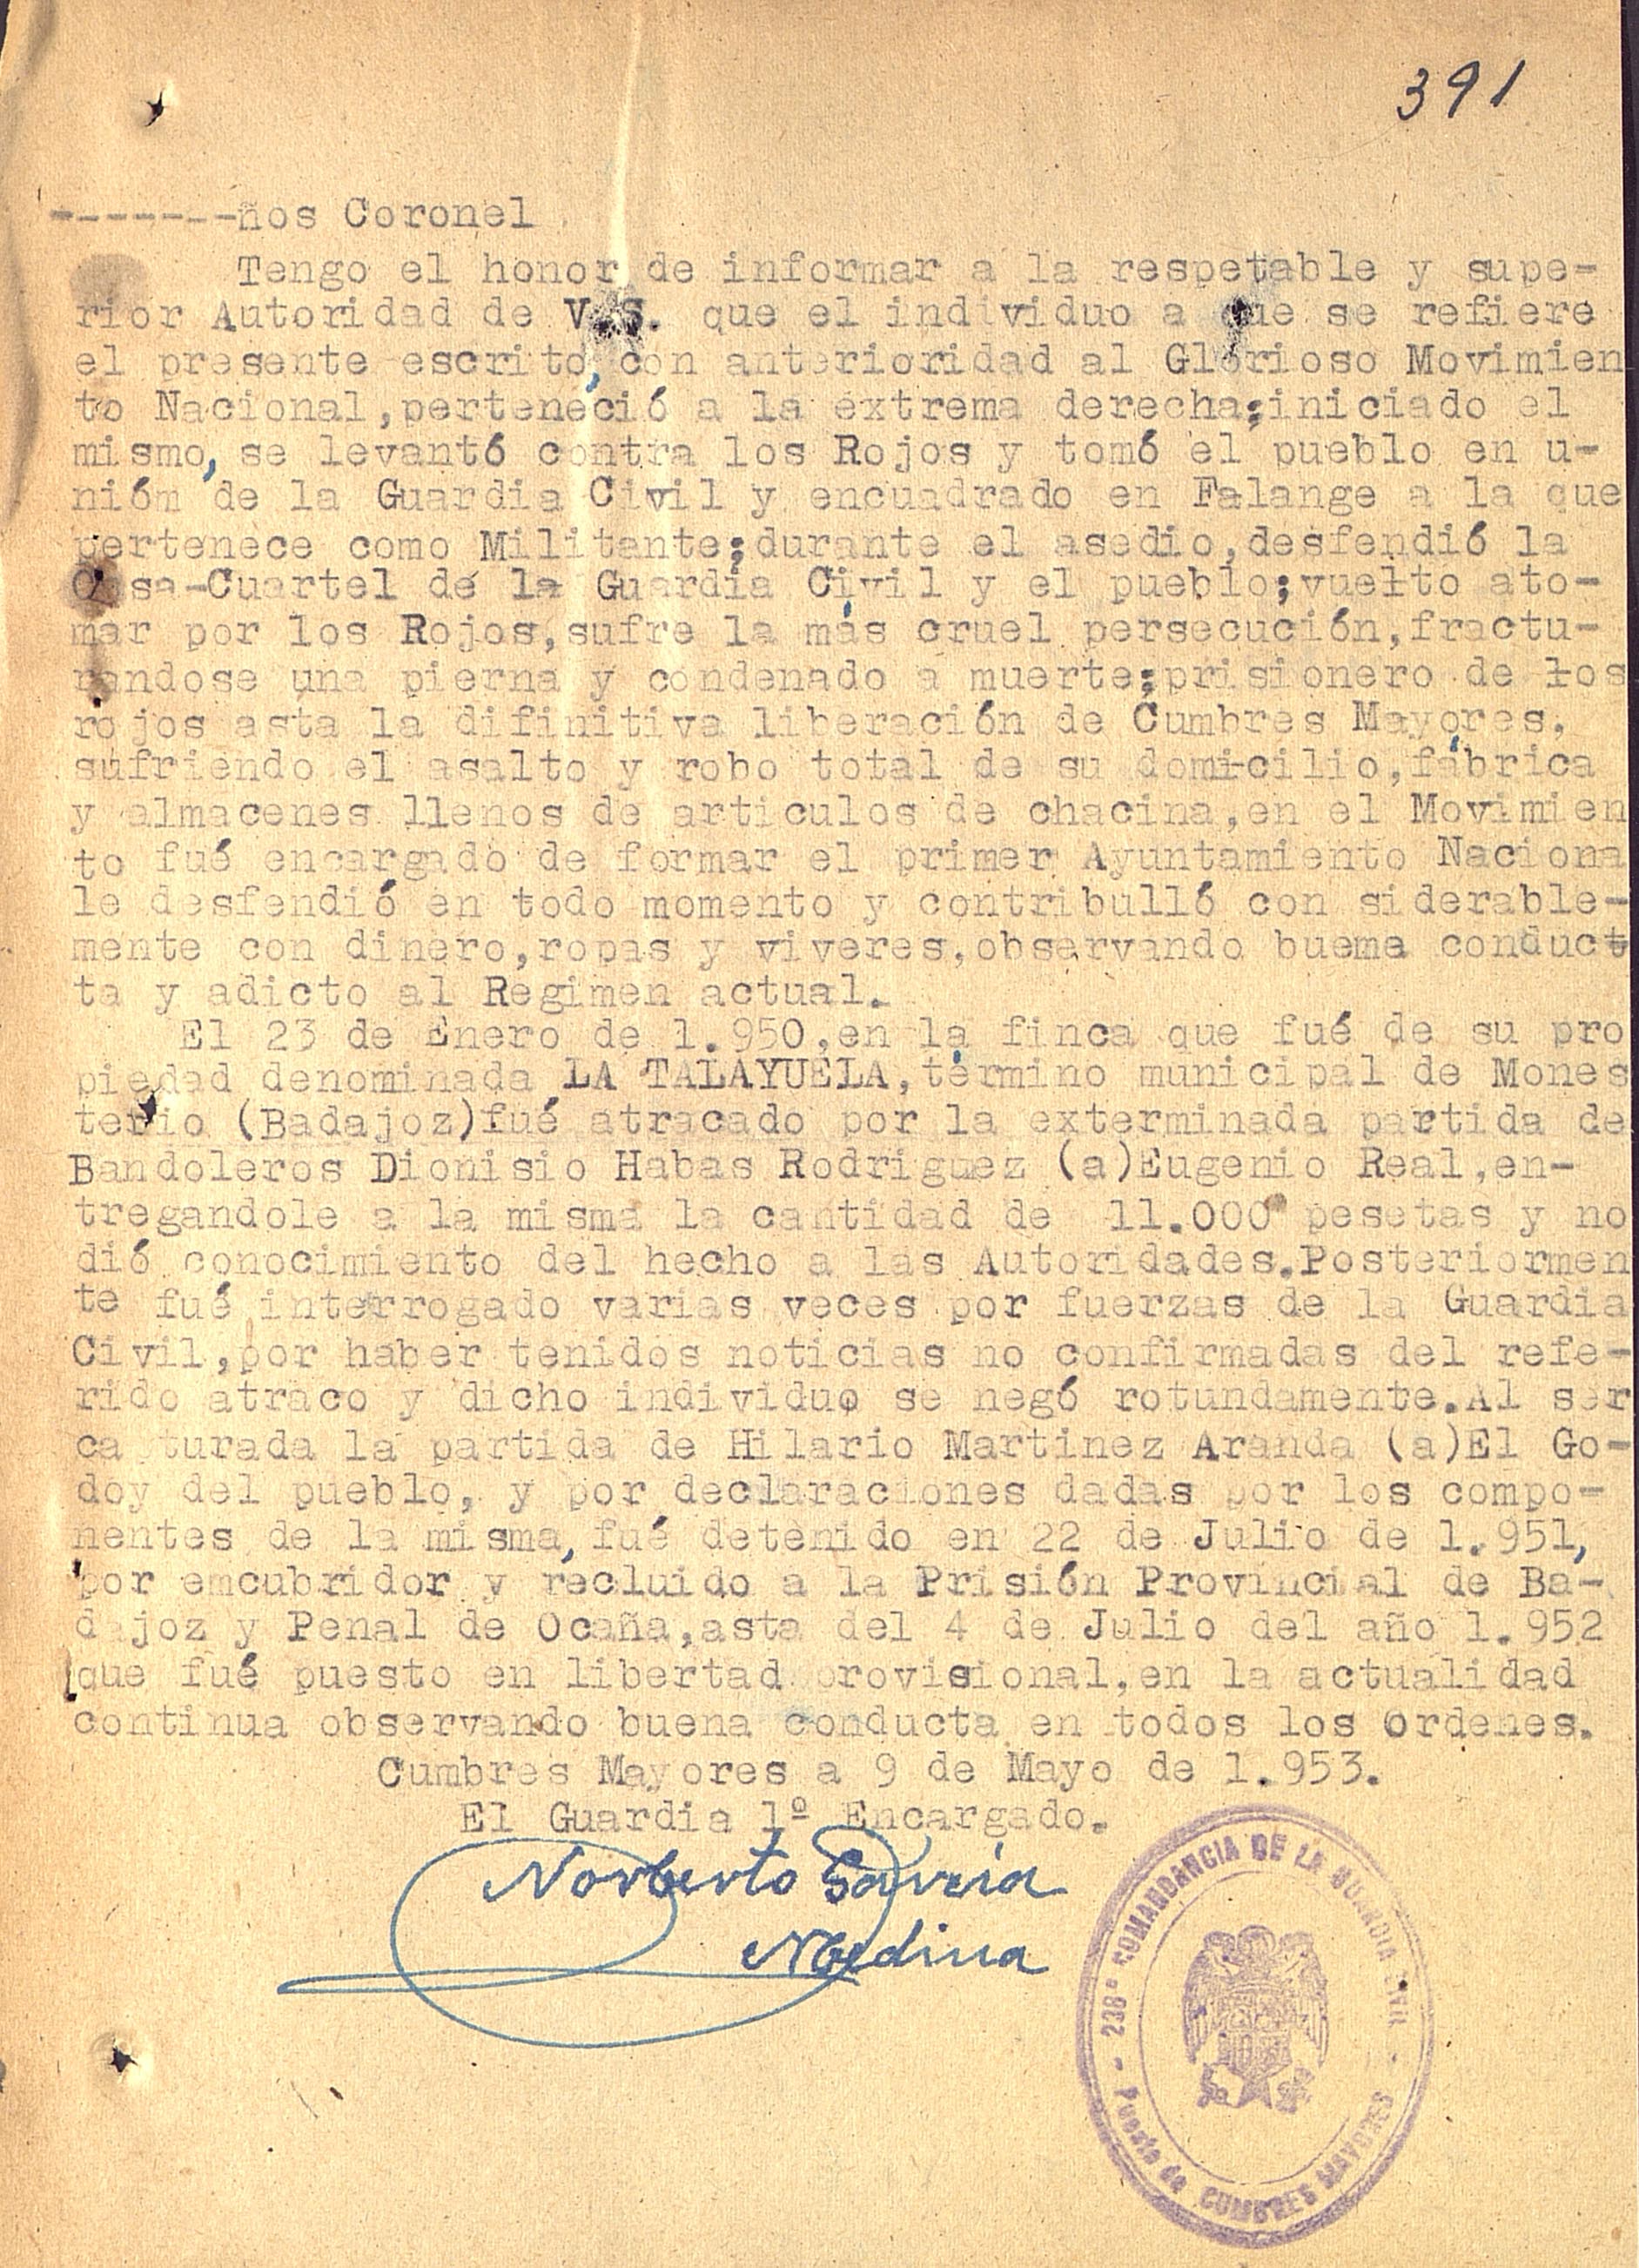 391
-------ños Coronel
Tengo el honor de informar a la respetable y supe-
rior Autoridad de V.S. que el individuo a que se refiere
el presente escrito, con anterioridad al Glorioso Movimien
to Nacional,perteneció a la extrema derecha;iniciado el
mismo, se levantó contra los Rojos y tomó el pueblo en u-
nióm de la Guardia Civil y encuadrado en Falange a la que
pertenece como Militante;durante el asedio,desfendió la
Casa-Cuartel de la Guardia Civil y el pueblo;vuelto ato-
mar por los Rojos,sufre la más cruel persecución,fractu-
randose una pierna y condenado a muerte;prisionero de los
rojos asta la difinitiva liberación de Cumbres Mayores,
sufriendo el asalto y robo total de su domicilio,fábrica
y almacenes llenos de articulos de chacina,en el Movimien
to fué encargado de formar el primer Ayuntamiento Naciona
le desfendió en todo momento y contribulló con siderable-
mente con dinero,ropas y viveres,observando buema conduct
ta y adicto al Regimen actual.
El 23 de Enero de 1.950,en la finca que fué de su pro
piedad denominada LA TALAYUELA,término municipal de Mones
terio (Badajoz)fué atracado por la exterminada partida de
Bandoleros Dionisio Habas Rodriguez (a)Eugenio Real,en-
tregandole a la misma la cantidad de 11.000 pesetas y no
dió conocimiento del hecho a las Autoridades.Posteriormen
te fué interrogado varias veces por fuerzas de la Guardia
Civil,por haber tenidos noticias no confirmadas del refe-
rido atraco y dicho individuo se negó rotundamente.Al ser
capturada la partida de Hilario Martinez Aranda (a)El Go-
doy del pueblo, y por declaraciones dadas por los compo-
nentes de la misma, fué detenido en 22 de Julio de 1.951,
por emcubridor y recluido a la Prisión Provincial de Ba-
dajoz y Penal de Ocaña,asta del 4 de Julio del año 1.952
que fué puesto en libertad provisional,en la actualidad
continua observando buena conducta en todos los ordenes.
Cumbres Mayores a 9 de Mayo de 1.953.
El Guardia 1º Encargado.
Norberto García
Medina
238ª COMANDANCIA DE LA GUARDIA CIVIL
- Puesto de CUMBRES MAYORES -